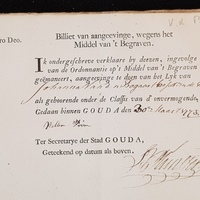 V d P
ro Deo.
Billiet van aangeevinge, wegens het
Middel van 't Begraven.
IK ondergeschreve verklaare by dezen, ingevolge
van de Ordonnantie op 't Middel van 't Begraven
geëmaneert, aangevinge te doen van het Lyk van
Johanna
als gehoorende onder de Classis van d'onvermogende,
Gedaan binnen GOUDA den 30 Maart 1773.
Ter Secretarye der Stad GOUDA,
Geteekent op datum als boven.